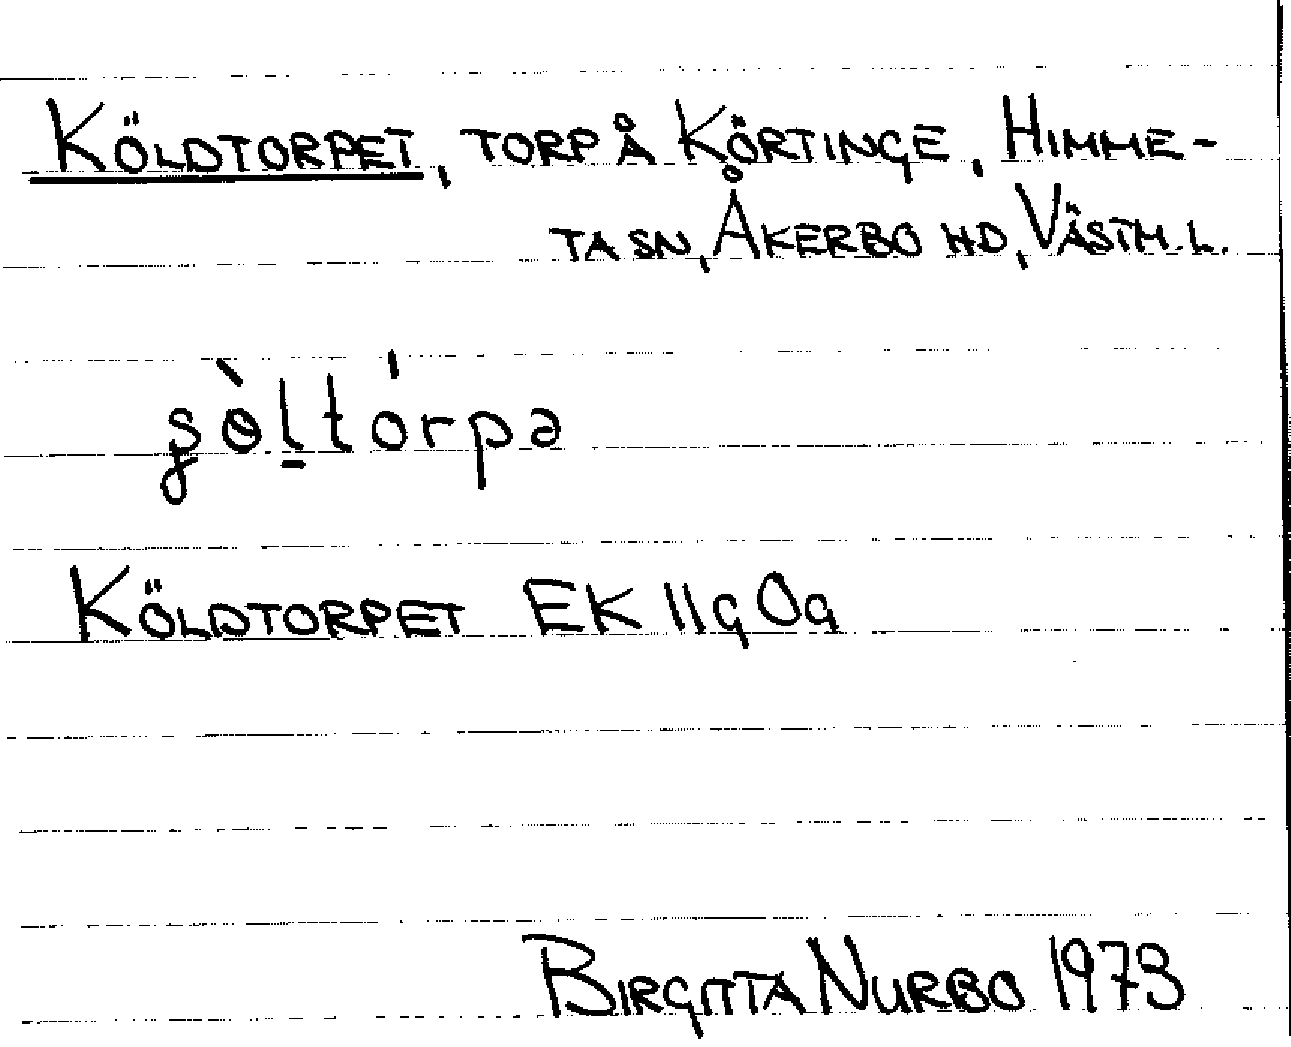 KÖLDTORPET, TORP Å KÖRTINGE, HIMME-
TA SN, ÅKERBO HD, VÄSTM. L.
KÖLDTORPET EK 11g 0g
BIRGITTA NURBO 1973